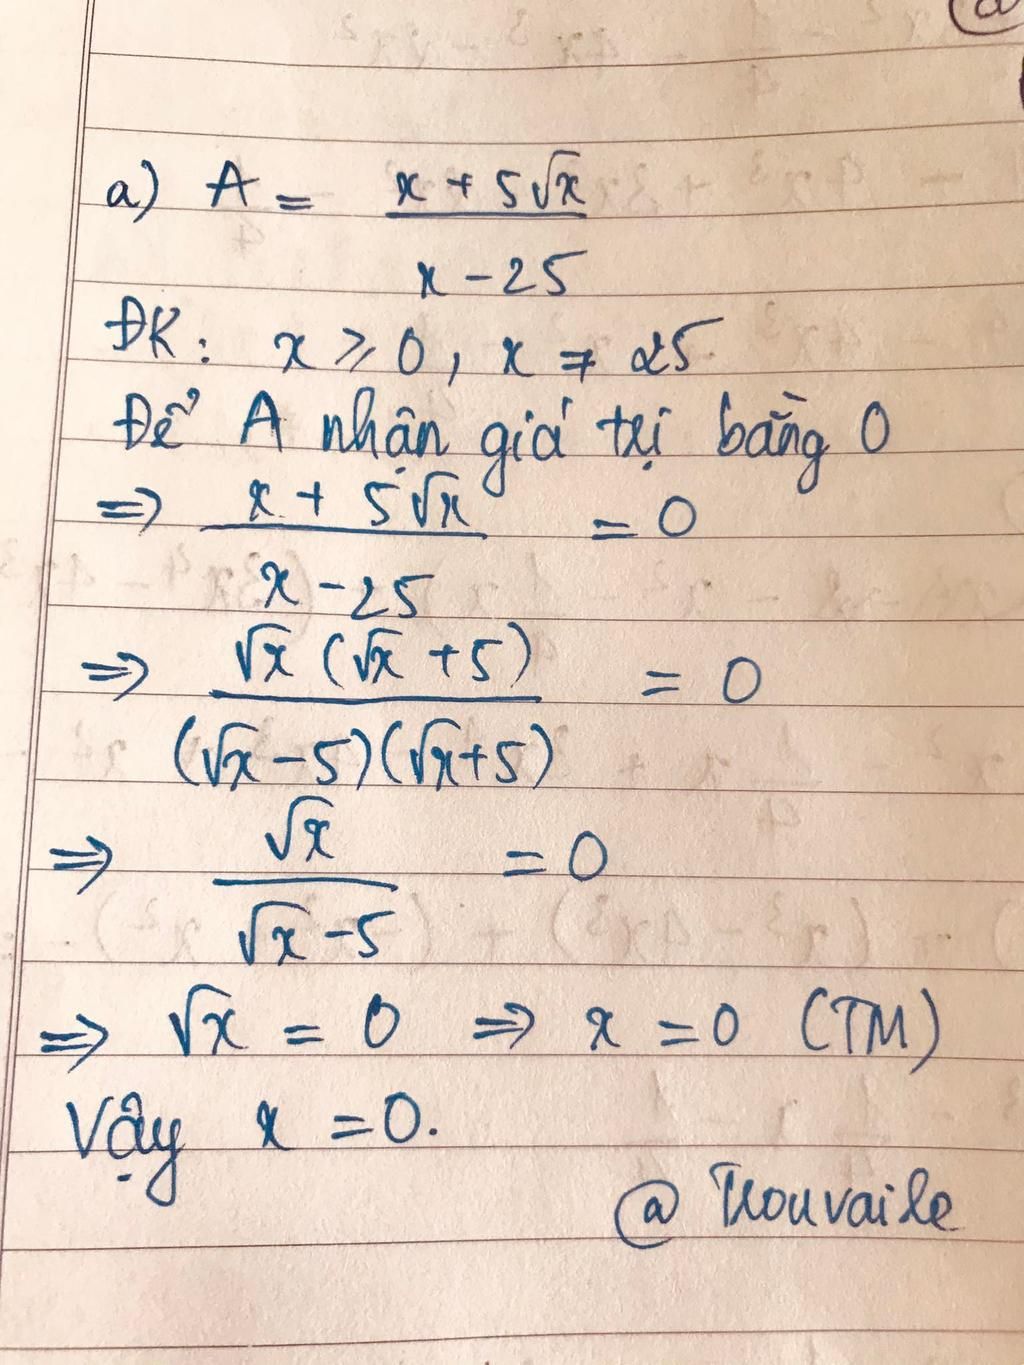 a) A = x + 5√x / x - 25
ĐK: x ≥ 0, x ≠ 25
Để A nhận giá trị bằng 0
=> x + 5√x / x - 25 = 0
=> √x (√x + 5) / (√x - 5)(√x + 5) = 0
=> √x / √x - 5 = 0
=> √x = 0 => x = 0 (TM)
Vậy x = 0.
@ Trouvaile